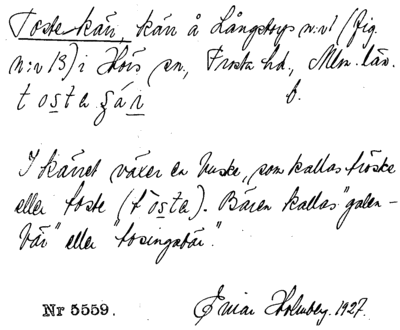 Toste kärr, kärr å Långstorps n:r 1 (fig.
n:r 13) i Hörs sn, Frosta hd, Mlm. län.
t o s t a ʂ ä r f.
I kärret växer en buske, som kallas tröske
eller toste (t ö s t a). Bären kallas "galen-
bär" eller "tosingabär".
Nr 5559. Einar Holmberg. 1927.